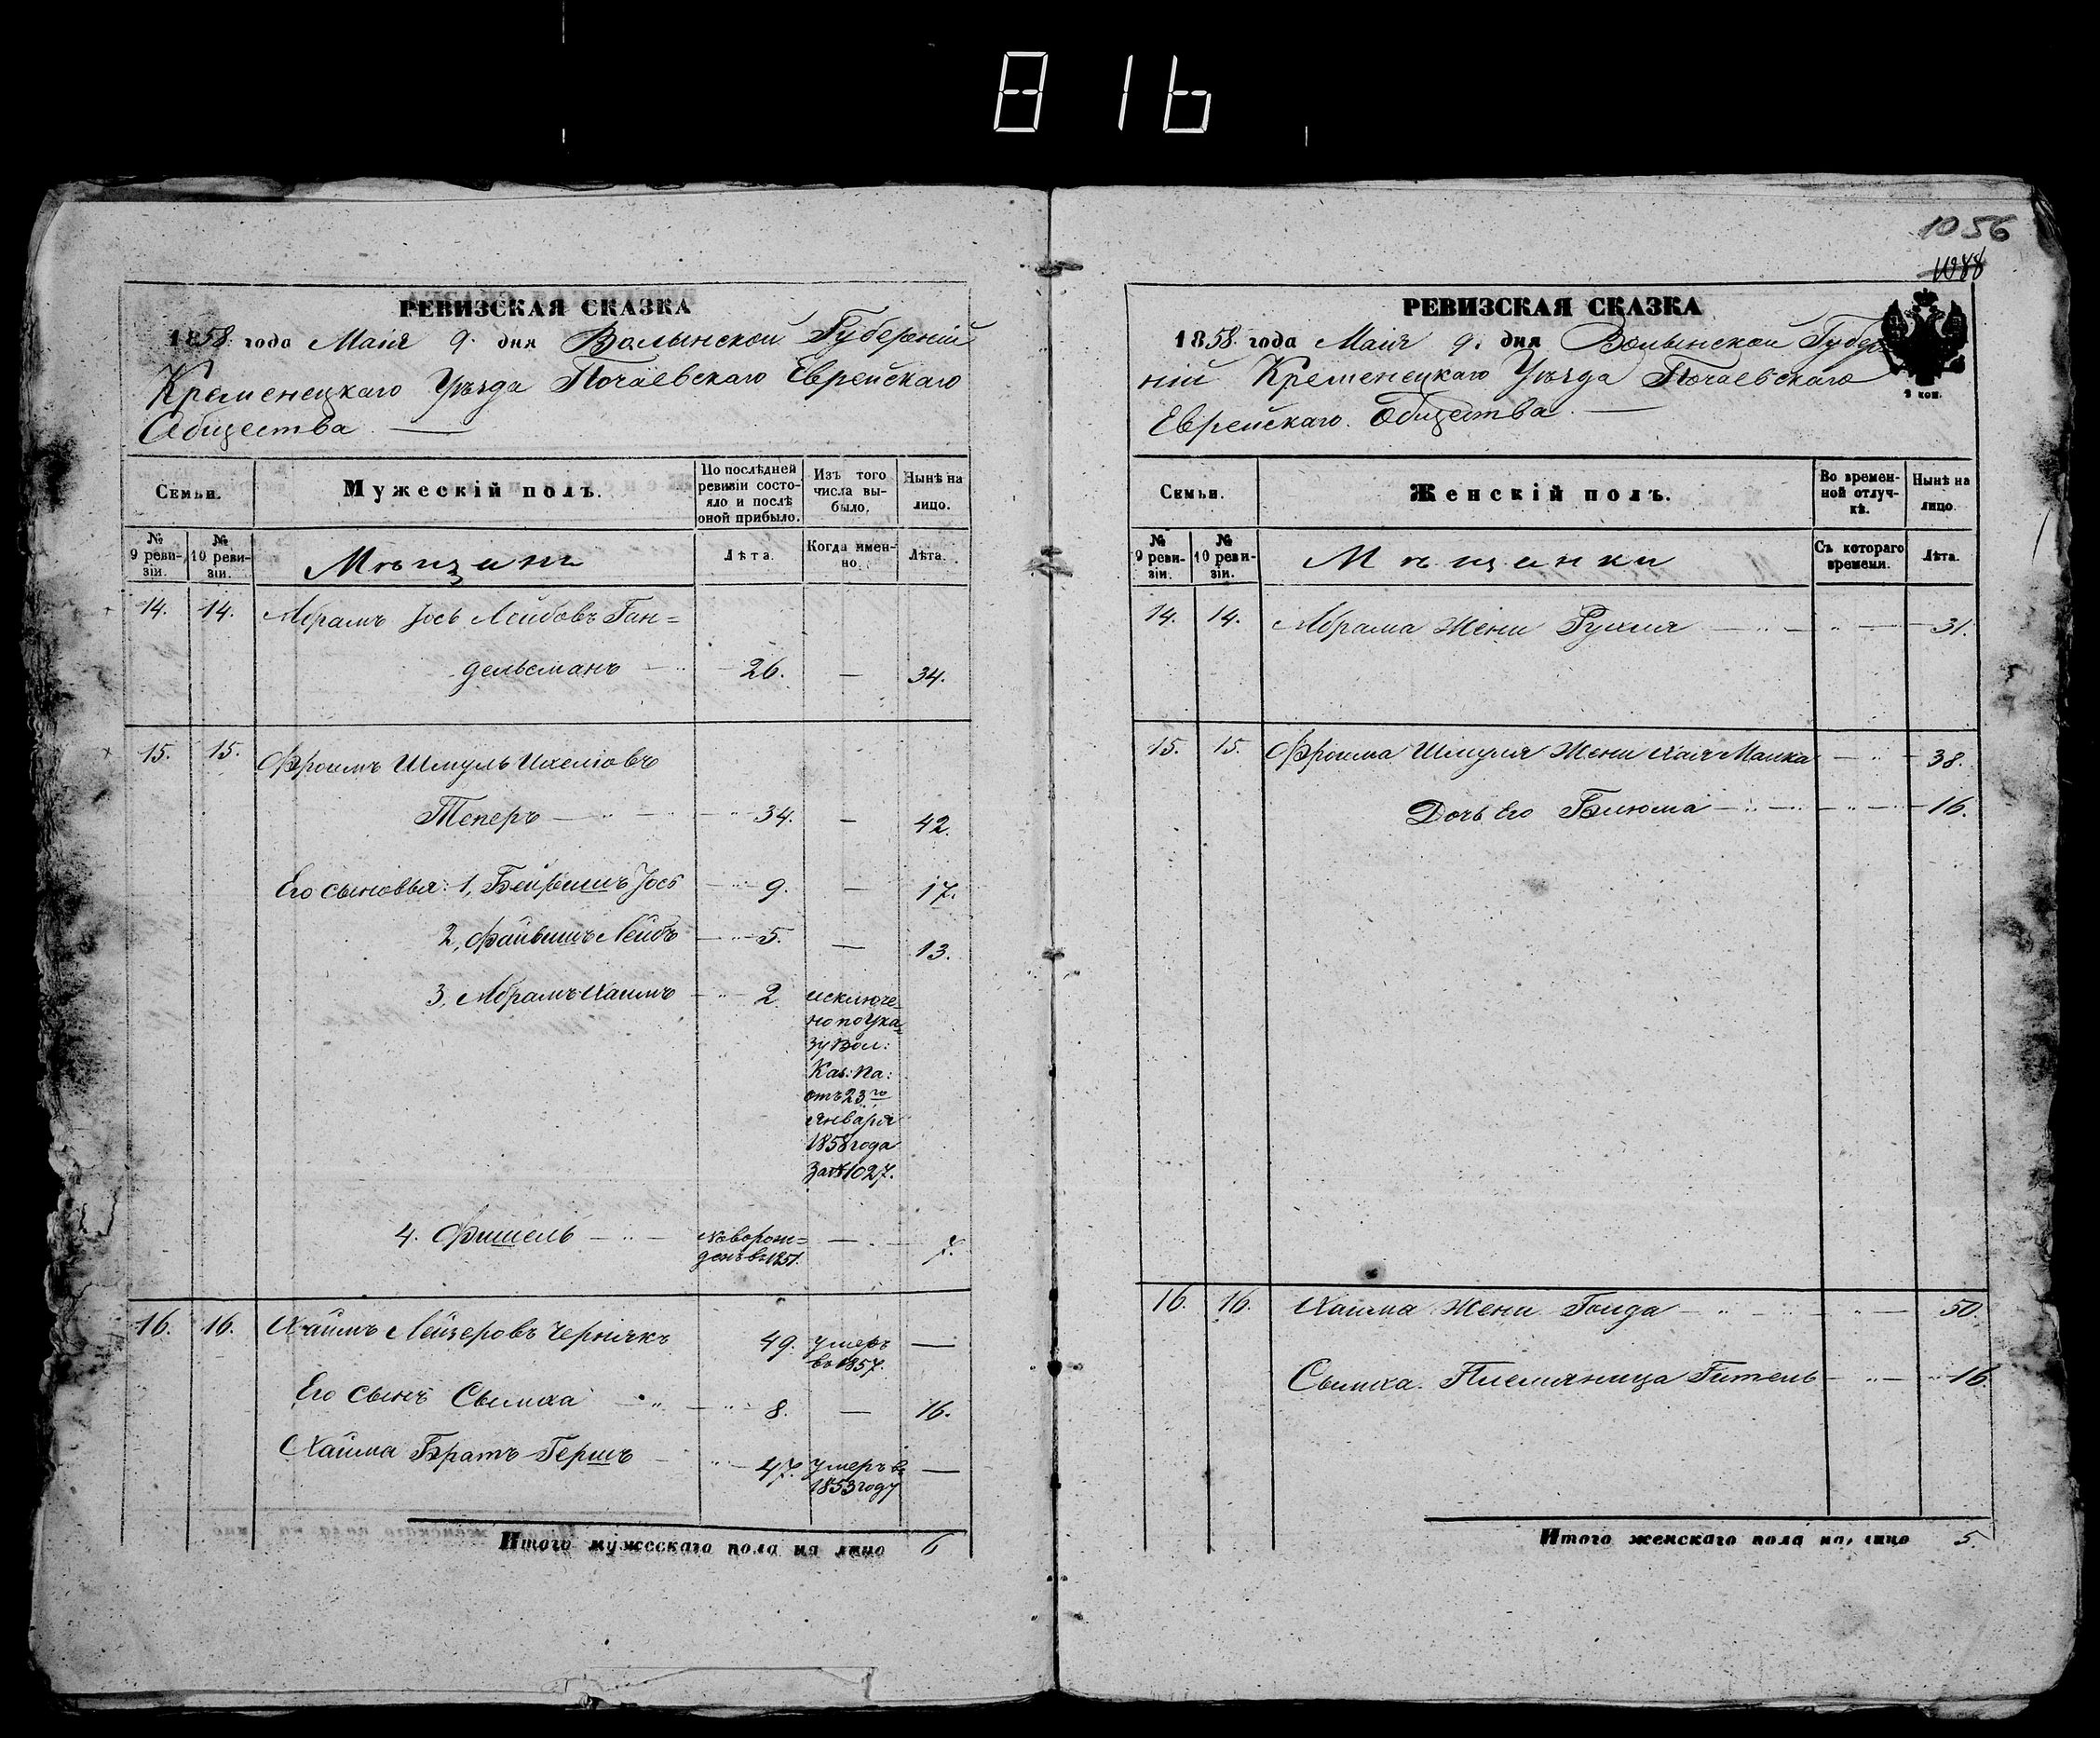 816
РЕВИЗСКАЯ СКАЗКА
1858 года Маія 9. дня Волынской Губерніи
Кременецкаго Уѣзда Почаевскаго Еврейскаго
Общества
Семьи.
Мужескій полъ.
По послѣдней ревизіи состояло и послѣ оной прибыло.
Изъ того числа выбыло.
Нынѣ на лицо.
№ 9 ревизіи.
№ 10 ревизіи.
Мѣщанъ
Лѣта.
Когда именно.
Лѣта.
14. 14. Абрамъ Іось Лейбовъ Ган=
дельсманъ 26. — 34.
15. 15. Фроимъ Шмуль Ихелiовъ
Теперъ 34. — 42.
Его сыновья: 1, Бейришъ Іось 9. — 17.
2, Файвишъ Лейбъ 5. — 13.
3, Абрамъ Хаимъ 2
исключе=
но по Ука=
зу Вол:
Каз: Па:
отъ 23го
января
1858 года
за № 1027.
4. Фишель
новорож=
денъ въ 1851.
— 7.
16. 16. Хаимъ Лейзеровъ Чернякъ 49. умеръ
въ 1857. —
Его сынъ Сымха 8. — 16.
Хаима Братъ Гершъ 47. умеръ въ
1853 году —
Итого мужескаго пола на лицо 6
1056
1088
РЕВИЗСКАЯ СКАЗКА
1858. года Маія 9. дня Волынской Губер
ніи Кременецкаго Уѣзда Почаевскаго
Еврейскаго Общества.
Семьи.
Женскій полъ.
Во временной отлучкѣ.
Нынѣ на лицо.
№ 9 ревизіи.
№ 10 ревизіи.
Мѣщанки
Съ котораго времени.
Лѣта.
14. 14. Абрама Жена Рухля 31.
15. 15. Фроима Шмуля Жена Хая Малка 38.
Дочь Его Блюма 16.
16. 16. Хаима Жена Голда 50.
Сымха. Племяница Гитель 16.
Итого женскаго пола на лицо 5.